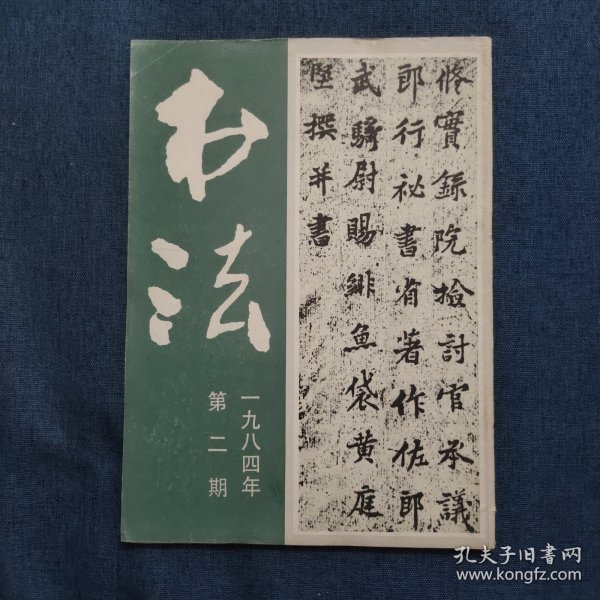 书法
一九八四年
第二期
修實錄院檢討官承議
郎行祕書省著作佐郎
武騎尉賜緋魚袋黃庭
堅撰并書
孔夫子旧书网
www.kongfz.com